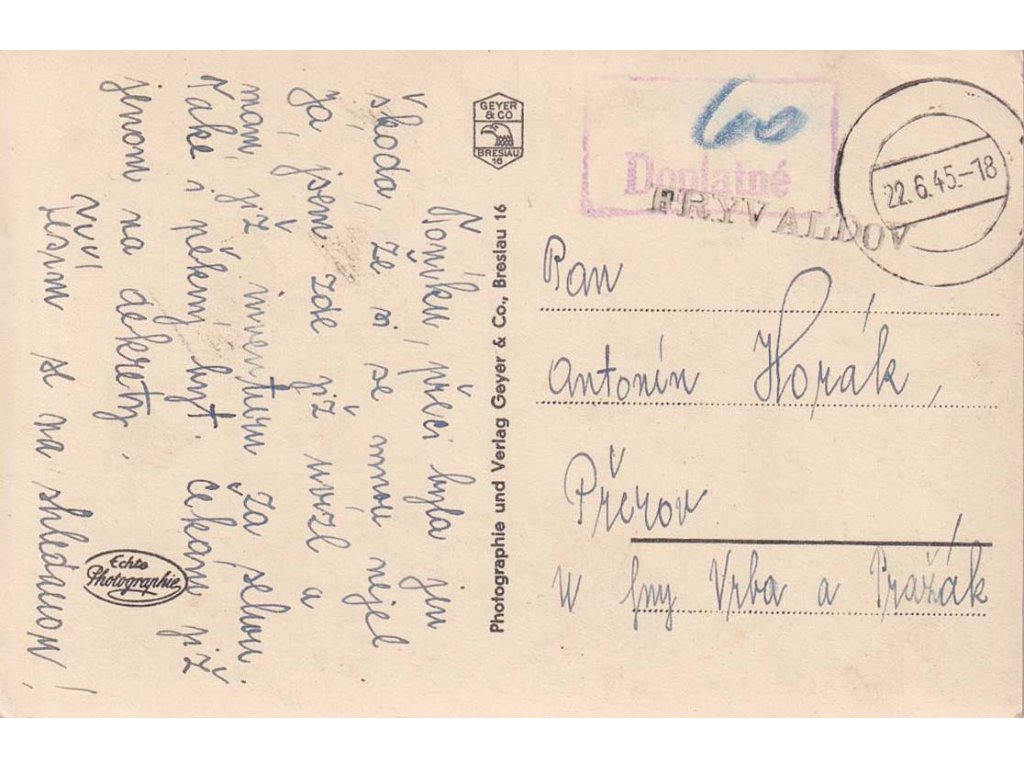 Toníku, přeci byla jen
škoda, že si se mnou nejel
Já jsem zde již uvízl a
mám již inventuru za sebou.
Také i pěkný byt. Čekám již
jenom na dekrety.
Těším se na shledanou!
Echte
Photographie
GEYER
& CO
BRESLAU
16
Photographie und Verlag Geyer & Co., Breslau 16
60
Doplatné
FRÝVALDOV
22.6.45.-18
Pan
Antonín Horák,
Přerov
u fny Vrba a Pražák